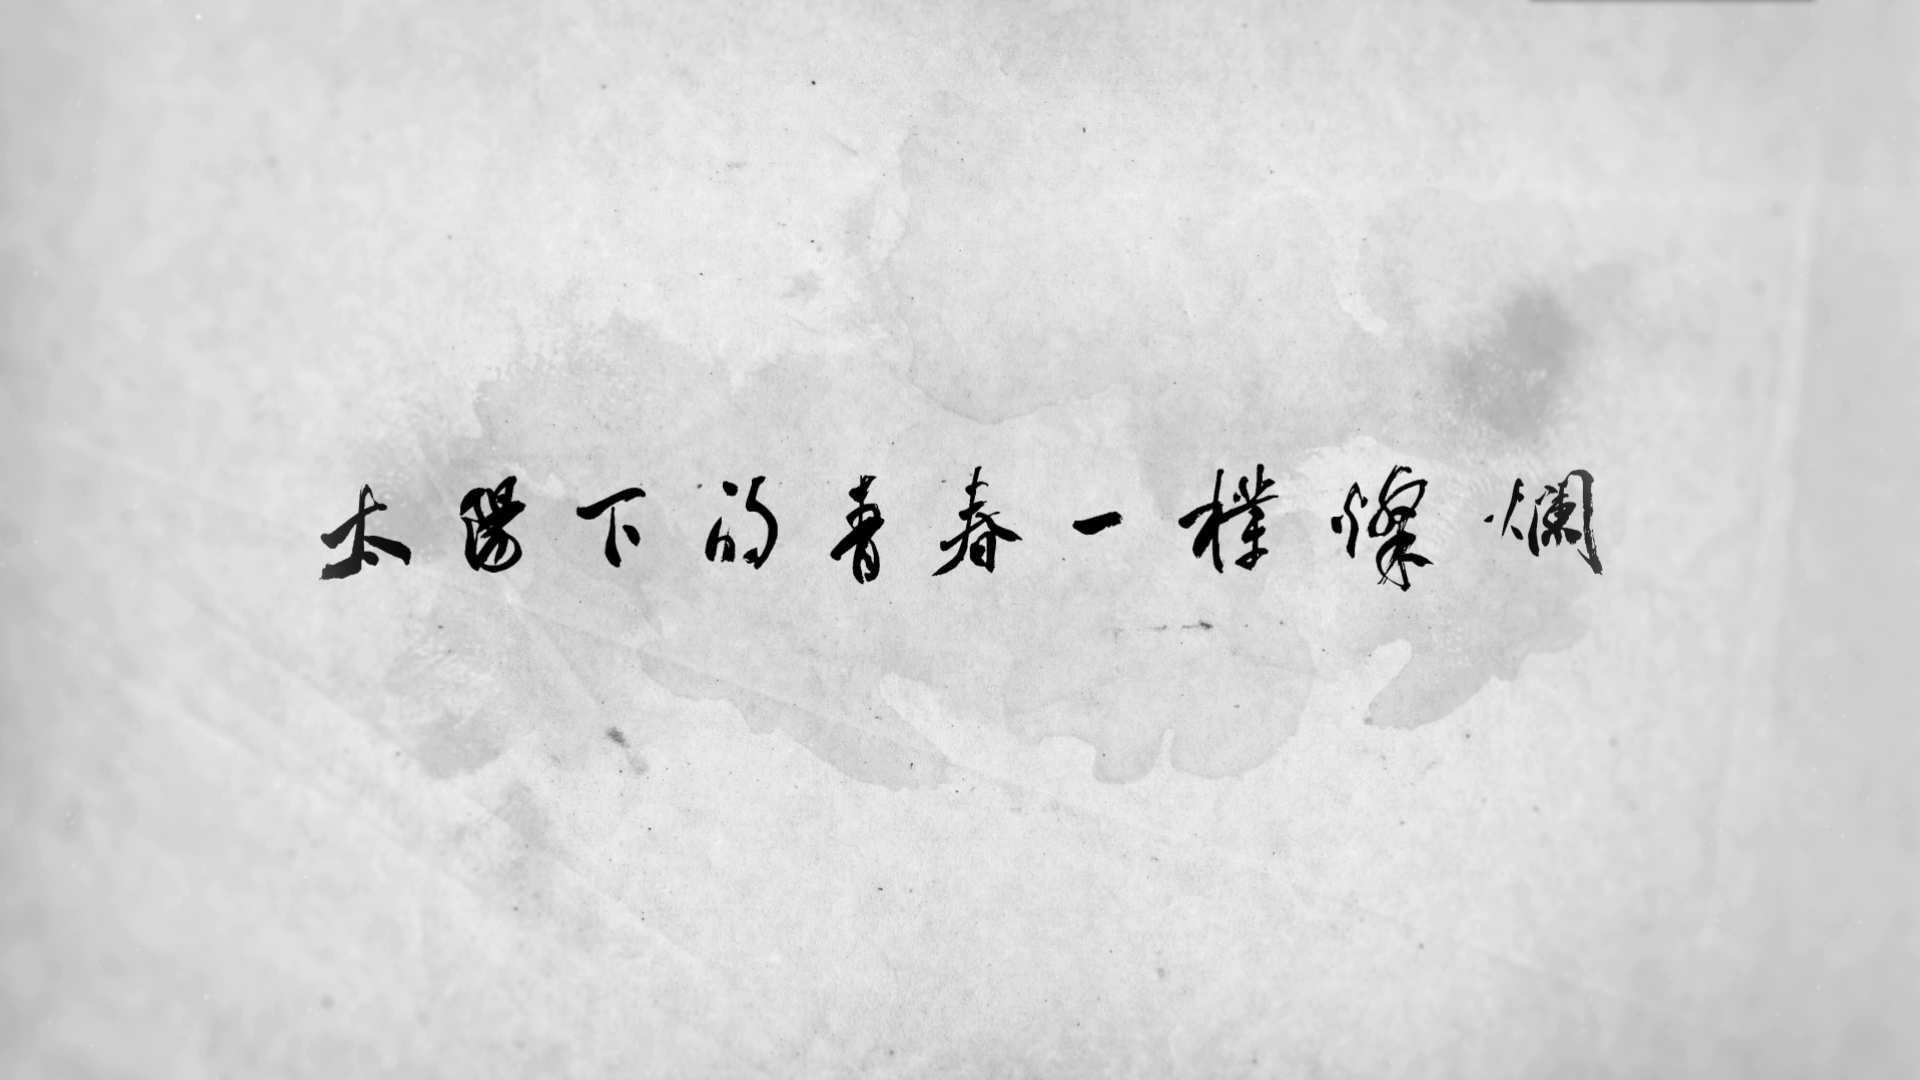 太陽下的青春一樸燦爛